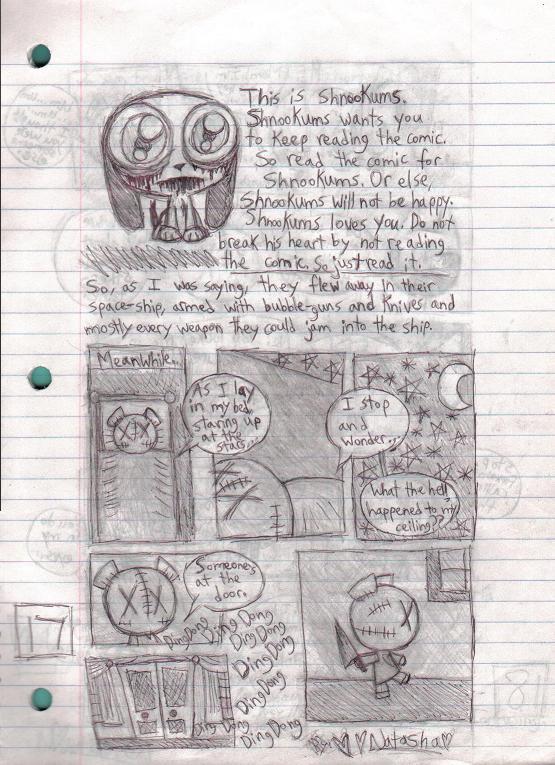 This is Shnookums.
Shnookums wants you
to keep reading the comic.
So read the comic for
Shnookums. Or else,
Shnookums will not be happy.
Shnookums loves you. Do not
break his heart by not reading
the comic. So just read it.
So, as I was saying, they flew away in their
space-ship, armed with bubble-guns and knives and
mostly every weapon they could jam into the ship.
Meanwhile...
As I lay
in my bed,
staring up
at the
stars...
I stop
and
wonder...
What the hell
happened to my
ceiling?
Someone's
at the
door.
Ding Dong
Ding Dong
Ding Dong
Ding Dong
Ding Dong
Ding Dong
Ding Dong
Ding Dong
Ding Dong
17
By: ♥♥Natasha♥